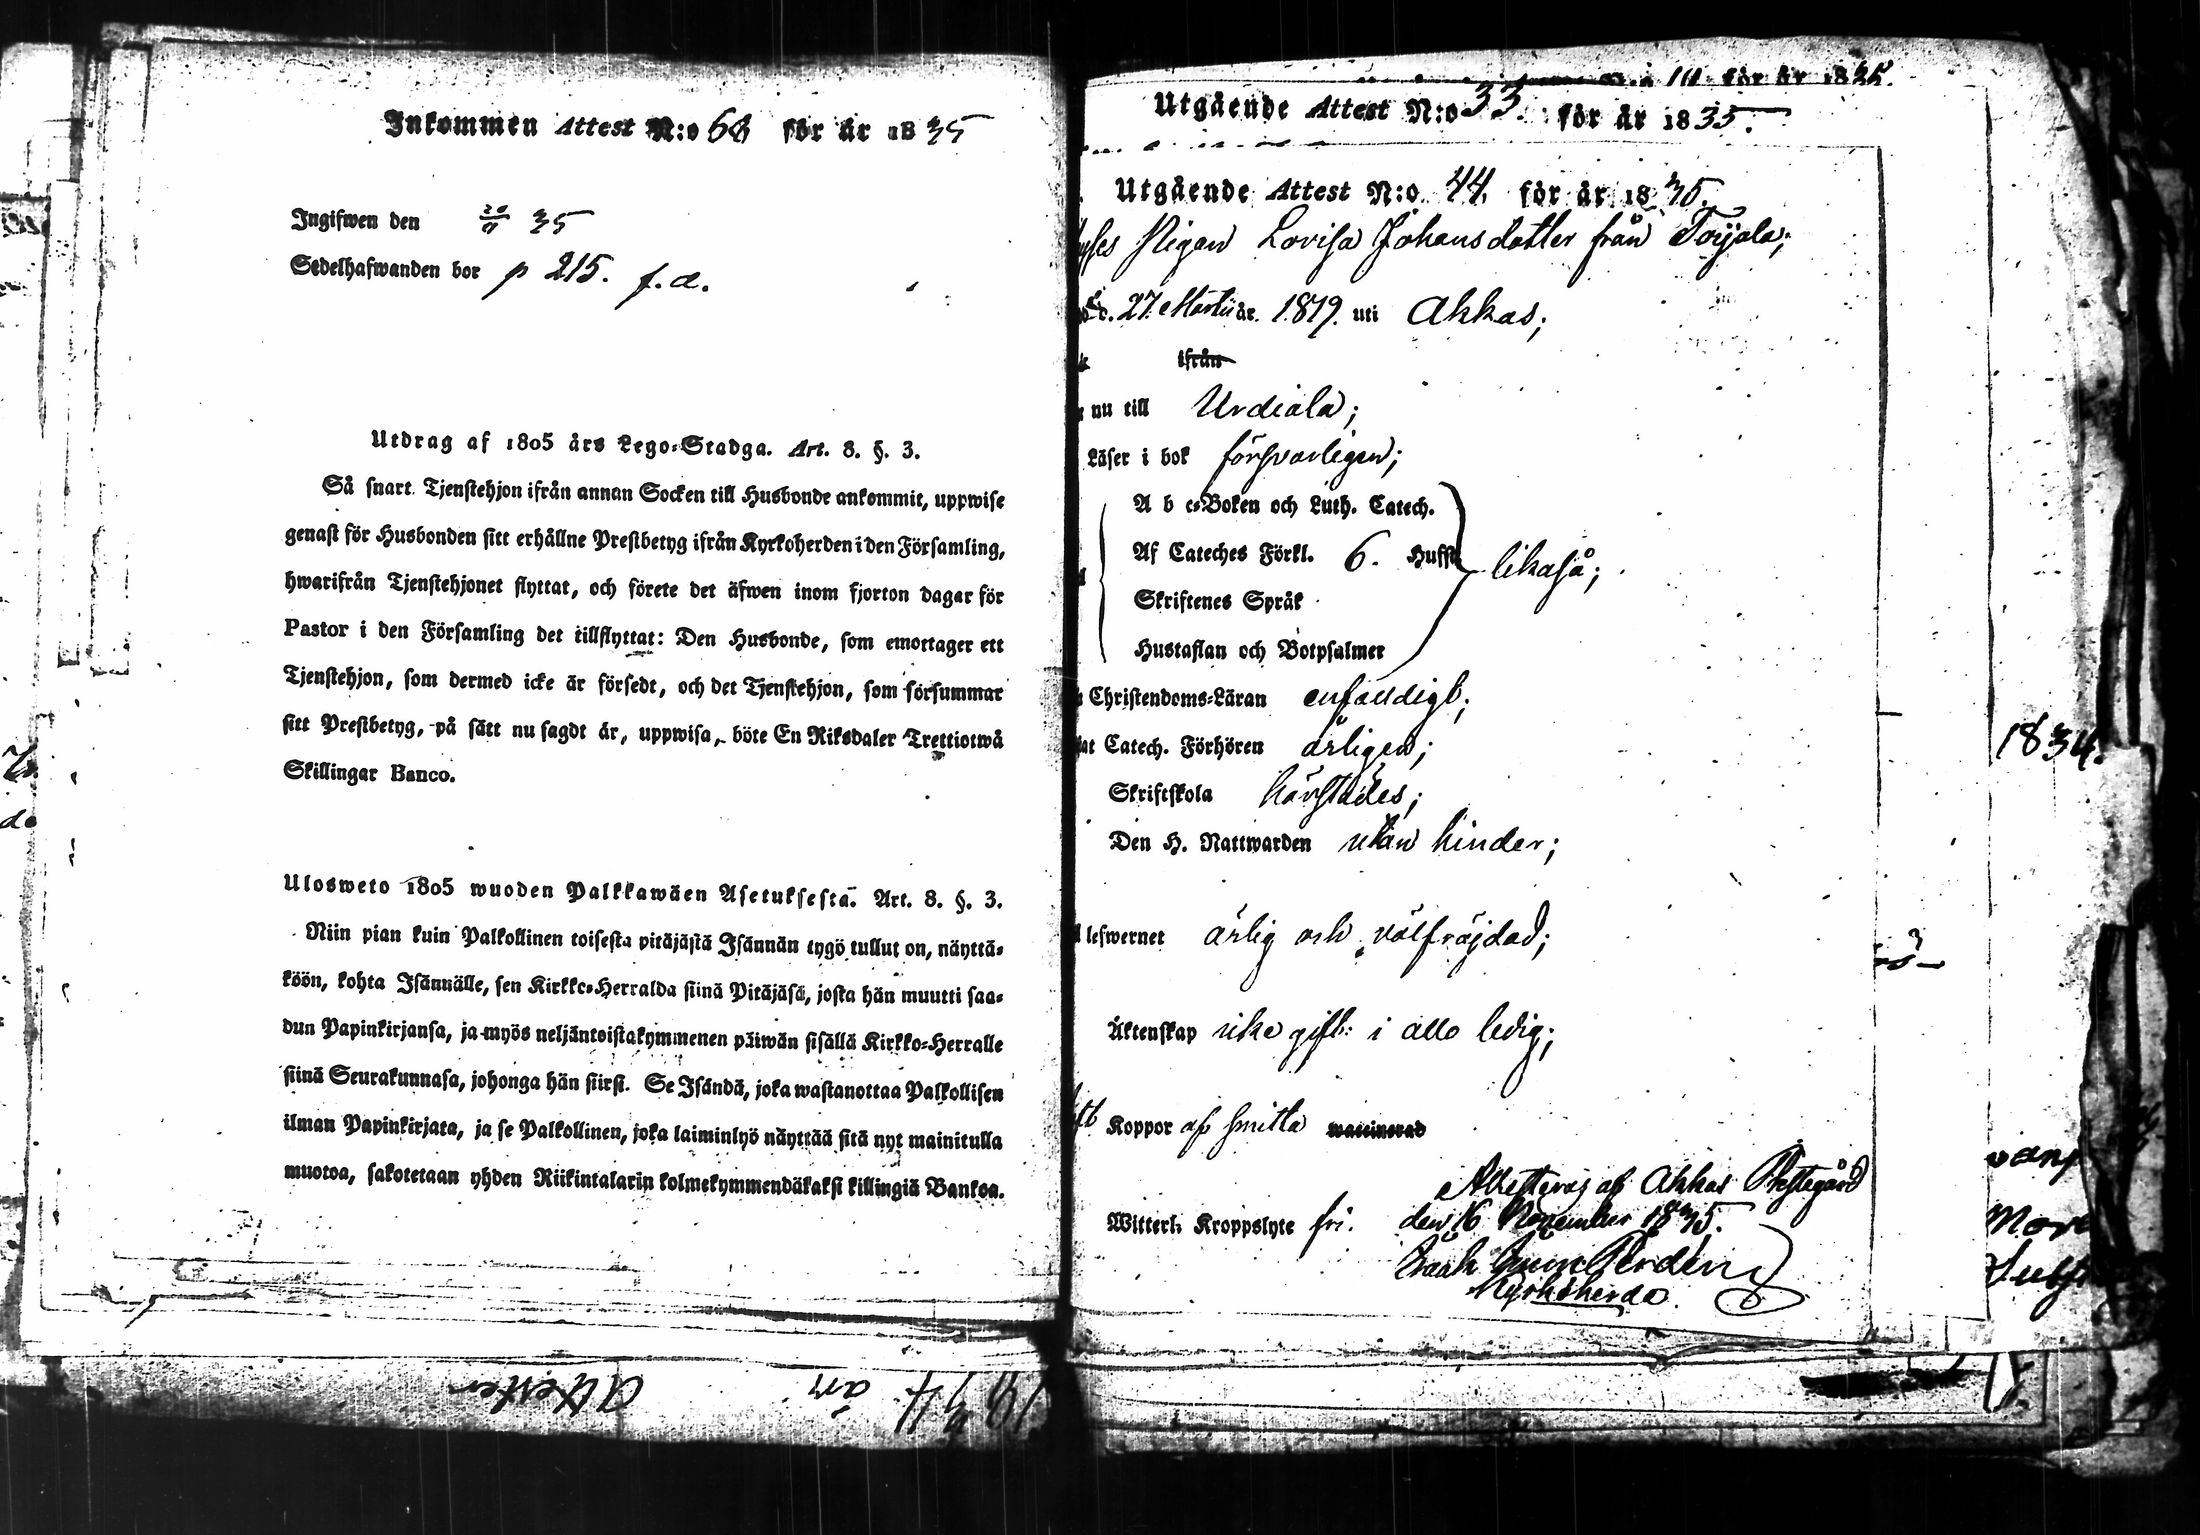 Inkommen Attest N:o 68 för år 1835
Ingifwen den 20/11 35
Sedelhafwanden bor p 215. f.d.
Utdrag af 1805 års Lego-Stadga. Art. 8. §. 3.
Så snart Tjenstehjon ifrån annan Socken till Husbonde ankommit, uppwise
genast för Husbonden sitt erhållne Prestbetyg ifrån Kyrkoherden i den Församling,
hwarifrån Tjenstehjonet flyttat, och förete det äfwen inom fjorton dagar för
Pastor i den Församling det tillflyttat: Den Husbonde, som emottager ett
Tjenstehjon, som dermed icke är försedt, och det Tjenstehjon, som försummar
sitt Prestbetyg, på sätt nu sagdt är, uppwisa, böte En Riksdaler Trettiotwå
Skillingar Banco.
Ulosweto 1805 wuoden Palkkawäen Asetuksesta. Art. 8. §. 3.
Niin pian kuin Palkollinen toisesta pitäjästä Isännän tygö tullut on, näyttä-
köön, kohta Isännälle, sen Kirkko-Herralda siinä Pitäjäsä, josta hän muutti saa-
dun Papinkirjansa, ja myös neljäntoistakymmenen päiwän sisällä Kirkko-Herralle
siinä Seurakunnasa, johonga hän siirsi. Se Isändä, joka wastanottaa Palkollisen
ilman Papinkirjata, ja se Palkollinen, joka laiminlyö näyttää sitä nyt mainitulla
muotoa, sakotetaan yhden Riikintalarin kolmekymmendäkaksi killingiä Bankoa.
Attester
för år 1835.
Utgående Attest N:o 33. för år 1835.
Utgående Attest N:o 44. för år 1835.
Pigan Lovisa Johansdotter från Toijala;
27. Martii år. 1819. uti Akkas;
ifrån
nu till Urdiala;
Läser i bok försvarligen;
A b c-Boken och Luth. Catech.
Af Cateches Förkl. 6. Hufst likaså;
Skriftenes Språk
Hustaflan och Botpsalmer
Christendoms-Läran enfaldigt;
Catech. Förhören årligen;
Skriftskola härstädes;
Den H. Nattwarden utan hinder;
lefwernet ärlig och välfräjdad;
Äktenskap icke gift: i allo ledig;
Koppor af smitta vaccinerad
Attesteras af Akkas Prestegård
Witterl. Kroppslyte fri. den 16 November 1835.
Kyrkoherde.
1834.